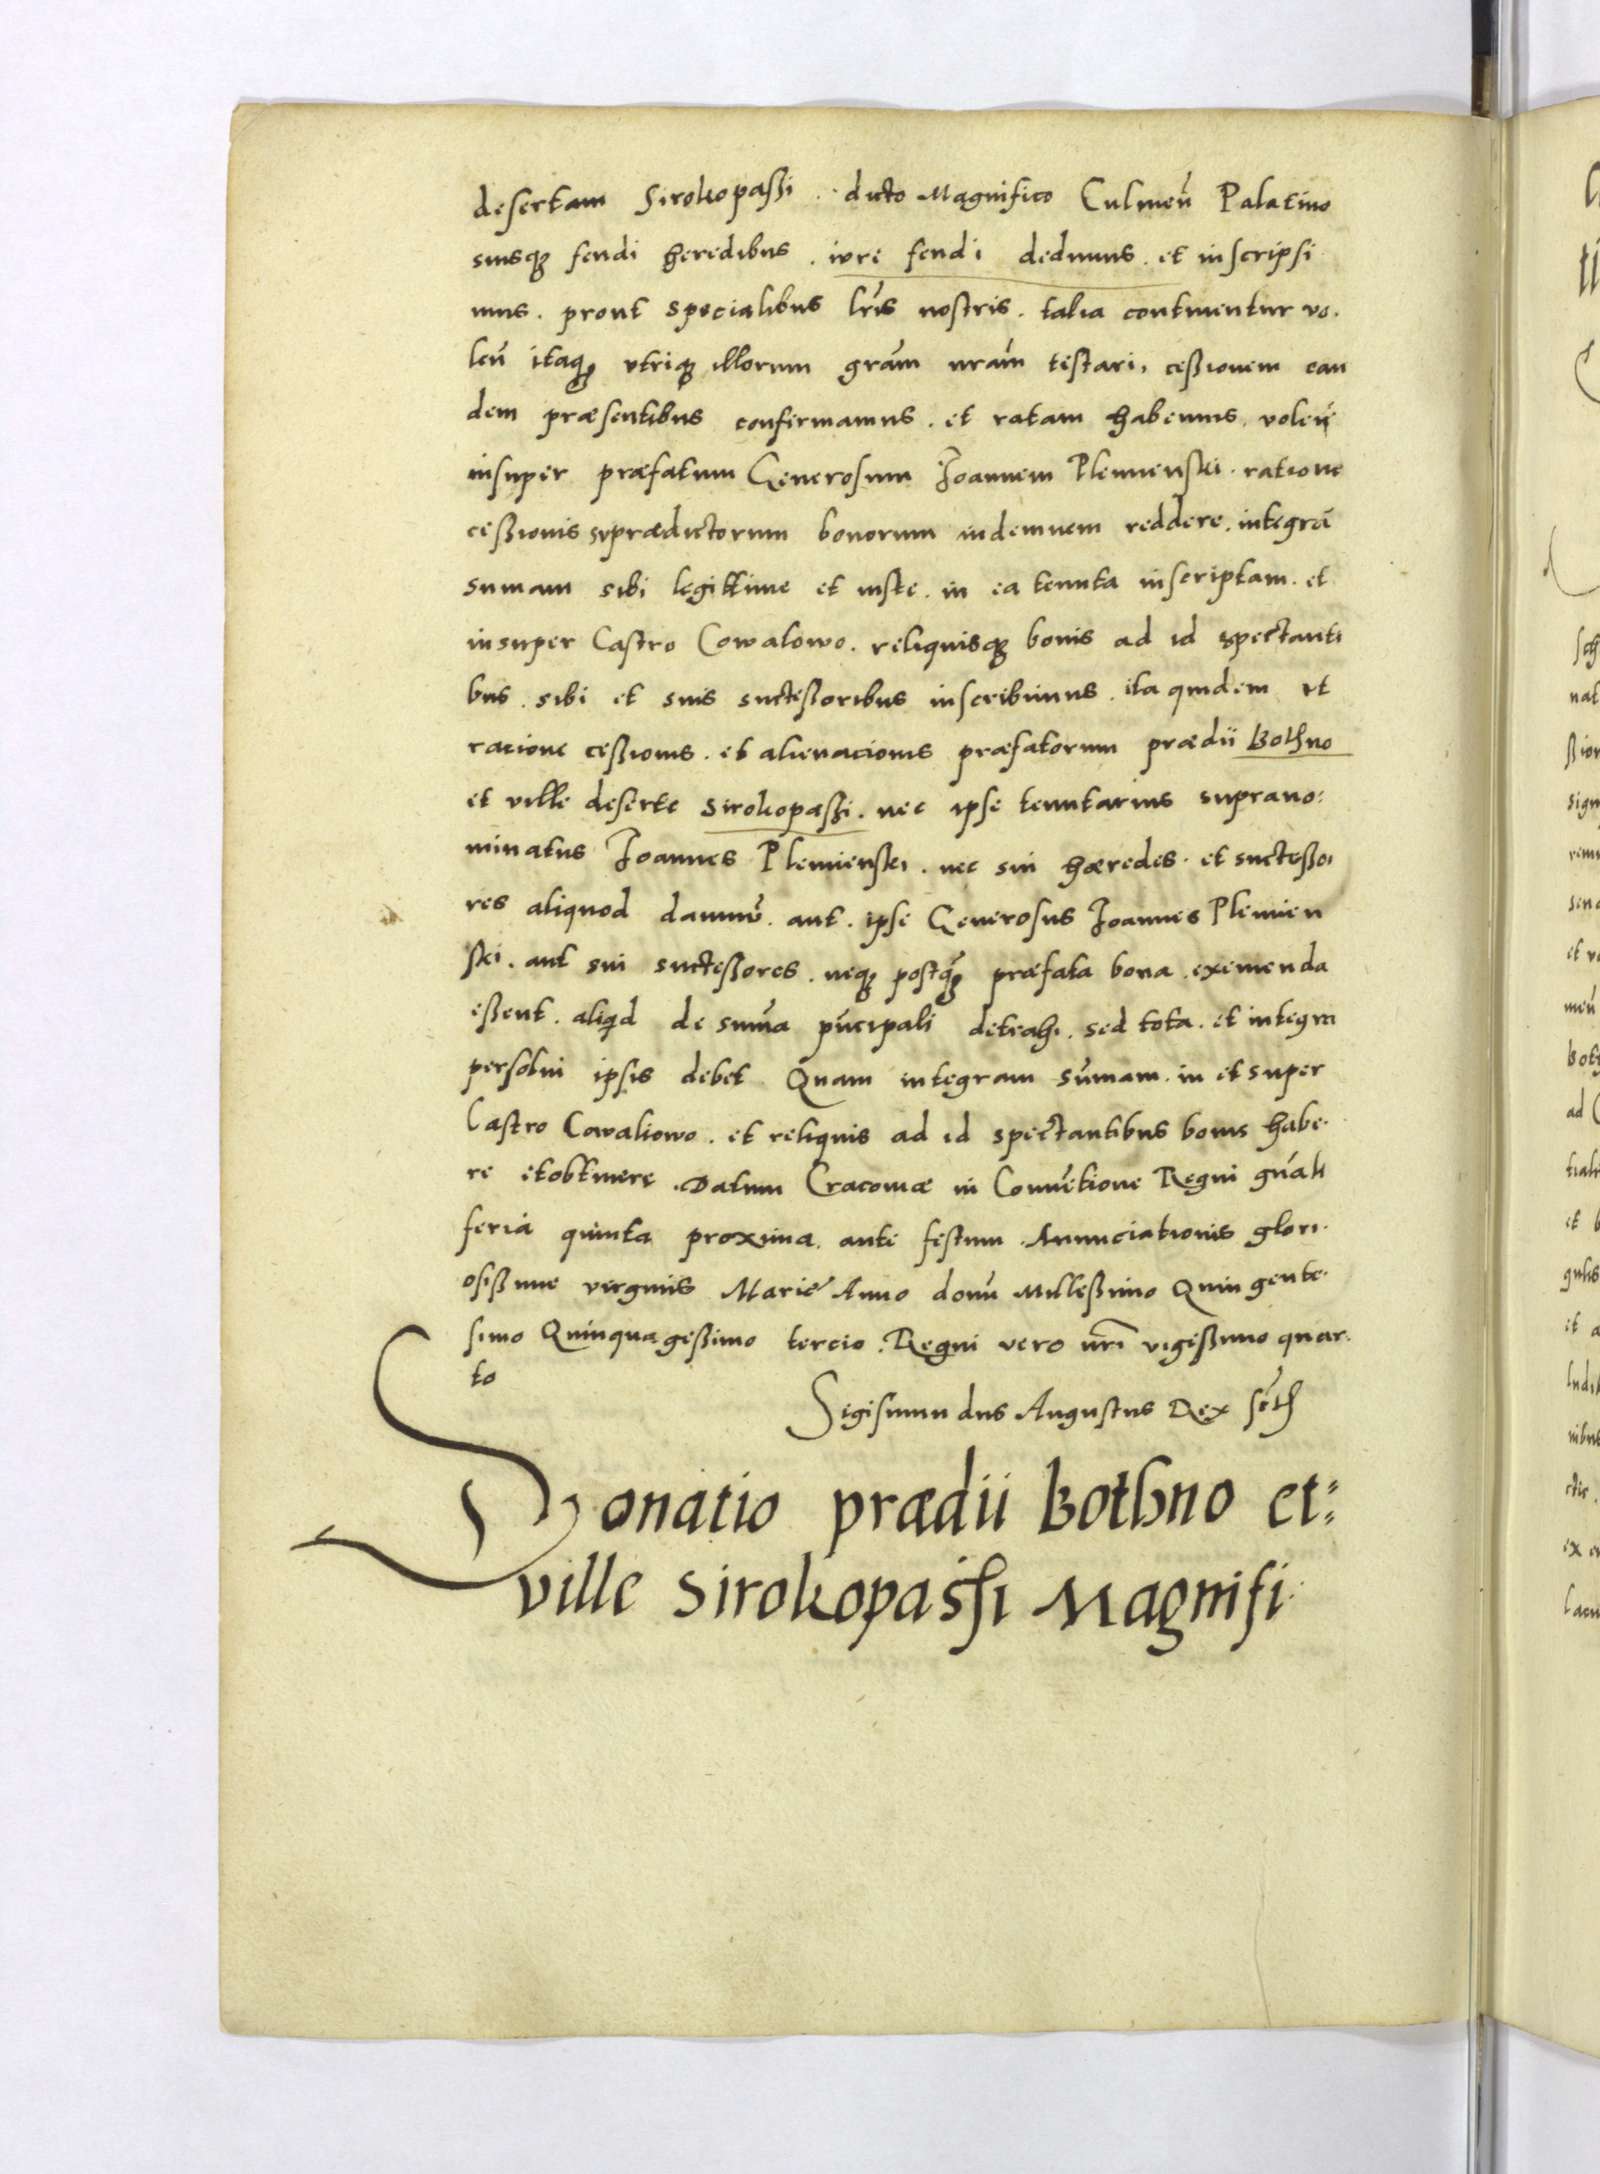 desertam Sirokopaßi . dicto Magnifico Culmeñ Palatino
suisq3 feudi heredibus . iure feudi dedimus . et inscripsi
mus . prout specialibus lr̃is nostris . talia continentur vo.
leñ itaq3 vtriq3 illorum gram̃ nram̃ testari, ceßionem ean
dem præsentibus confirmamus . et ratam habemus . voleñ
insuper præfatum Generosum Ioannem Plemienski . ratione
ceßionis supradictorum bonorum indemnem reddere . integrã
sumam sibi legittime et iuste . in ea tenuta inscriptam . et
insuper Castro Cowalowo . reliquisq3 bonis ad id spectanti
bus . sibi et suis succeßoribus inscribimus . ita quidem ut
racione ceßionis . et alienacionis præfatorum prædii Bothno
et ville deserte Sirokopaßi . nec ipse tenutarius suprano:
minatus Ioannes Plemienski . nec sui hæredes . et succeßo
res aliquod damnũ . aut . ipse Generosus Ioannes Plemien
ski . aut sui succeßores . neq3 postq3 præfata bona . eximenda
eßent . aliqid de sum̃a pñcipali detrahi . sed tota . et integra
persolui ipsis debet Quam integram sum̃am . in et super
Castro Cowaliowo . et reliquis ad id spectantibus bonis habe.
re et obtinere . Datum Cracoviæ in Conuẽtione Regni gñali
feria quinta proxima . ante festum . Annunciationis glori.
osißime virginis Marie Anno domĩ Milleßimo Quingente.
simo Quinquageßimo tercio . Regni vero nr̃i vigeßimo quar.
to
Sigismundus Augustus Rex sc̃th
Donatio prædii Bothno et=
ville Sirokopaßi Magnifi.